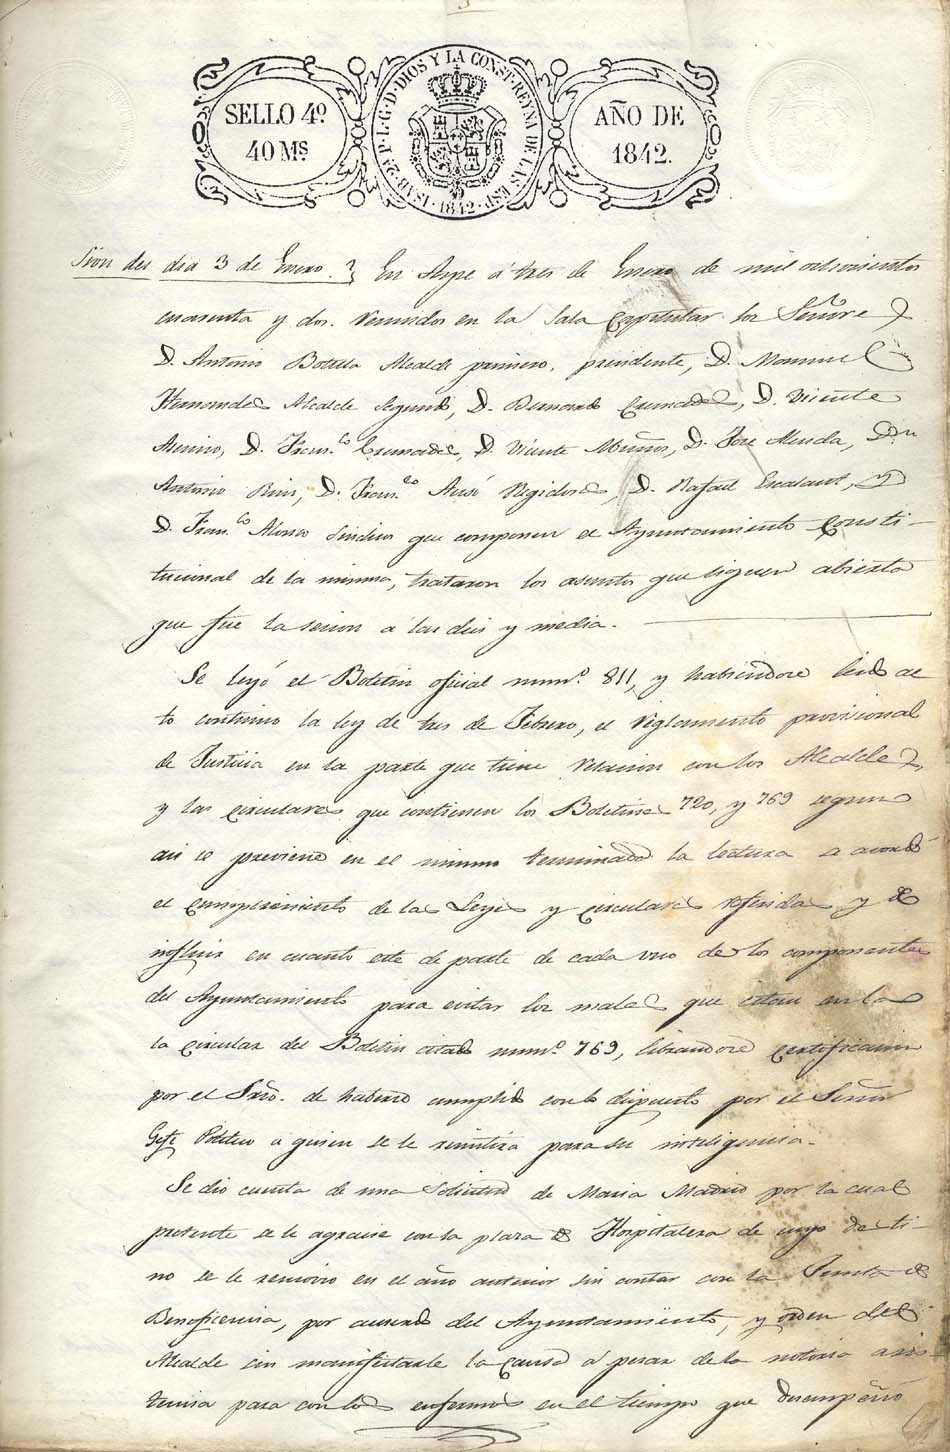 SELLO 4º
40 Ms.
ISAB. 2ª P. L. G. D. DIOS Y LA CONST. REYNA DE LAS ESP.
1842
AÑO DE
1842.
Sion del dia 3 de Enero. En Aspe á tres de Enero de mil ochocientos
cuarenta y dos. Reunidos en la Sala Capitular los Señores
D. Antonio Botella Alcalde primero, presidente, D. Manuel
Hernandes Alcalde Segundo, D. Bernardo Cremades, D. Vicente
D. Franco Cremades, D. Vicente D. Jose Don
Antonio D. Franco Regidores, D. Rafael Escalant, y
D. Franco Alonso Sindicos que componen el Ayuntamiento Consti-
tucional de la misma, trataron los asuntos que siguen abierta
que fue la sesion a las dies y media.
Se leyó el Boletin oficial numº 811, y habiendose leido ac
to continuo la ley de tres de Febrero, el Reglamento provisional
de Justicia en la parte que tiene relacion con los Alcaldes,
y las circulares que contienen los Boletines 720, y 769 segun
asi se previene en el mismo terminada la lectura se acordó
el cumplimiento de las Leyes y circulares referidas y de
influir en cuanto esté de parte de cada uno de los componentes
del Ayuntamiento para evitar los males que citan en la
la circular del Boletin citado numº 769, librandose certificacion
por el Srio. de haberse cumplido con lo dispuesto por el Señor
Gefe Politico a quien se le remitira para su inteligencia.
Se dio cuenta de una Solicitud de Maria Madrid por la cual
pretente se le agracie con la plaza de Hospitalera de cuyo desti-
no se le removio en el año anterior sin contar con la Junta de
Beneficencia, por acuerdo del Ayuntamiento, y orden del
Alcalde sin manifestarle la causa á pesar de la notoria asis-
tencia para con los enfermos en el tiempo que desempeñó